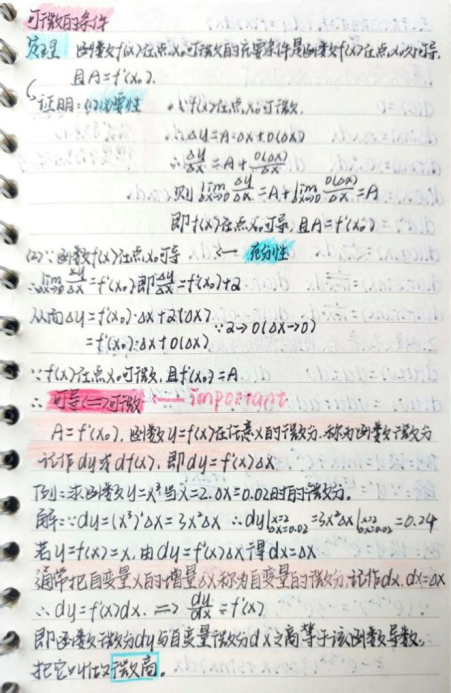 可微的条件
定理 函数f(x)在点x₀可微的充要条件是函数f(x)在点x₀处可导,
且A=f'(x₀).
证明:(1)必要性 ∵f(x)在点x₀可微,
∴Δy=A·Δx+o(Δx)
∴Δy/Δx=A+o(Δx)/Δx
则 lim Δx→0 Δy/Δx=A+lim Δx→0 o(Δx)/Δx=A
即f(x)在点x₀可导,且A=f'(x₀)
(2)∵函数f(x)在点x₀可导 ← 充分性
∴lim Δx→0 Δy/Δx=f'(x₀)即Δy/Δx=f'(x₀)+α
从而Δy=f'(x₀)·Δx+α(Δx) ∵α→0(Δx→0)
=f'(x₀)·Δx+o(Δx)
∵f(x)在点x₀可微,且f'(x₀)=A
∴可导⇔可微 ← important
A=f'(x₀).函数y=f(x)在任意x的微分,称为函数微分
记作dy或df(x),即dy=f'(x)Δx
例:求函数y=x³当x=2.Δx=0.02时的微分.
解:∵dy=(x³)'Δx=3x²Δx ∴dy|x=2 Δx=0.02=3x²Δx|x=2 Δx=0.02=0.24
若y=f(x)=x,由dy=f'(x)Δx得dx=Δx
通常把自变量x的增量Δx称为自变量的微分,记作dx.dx=Δx
∴dy=f'(x)dx. ⇒ dy/dx=f'(x)
即函数微分dy与自变量微分dx之商等于该函数导数,
把它叫做微商。